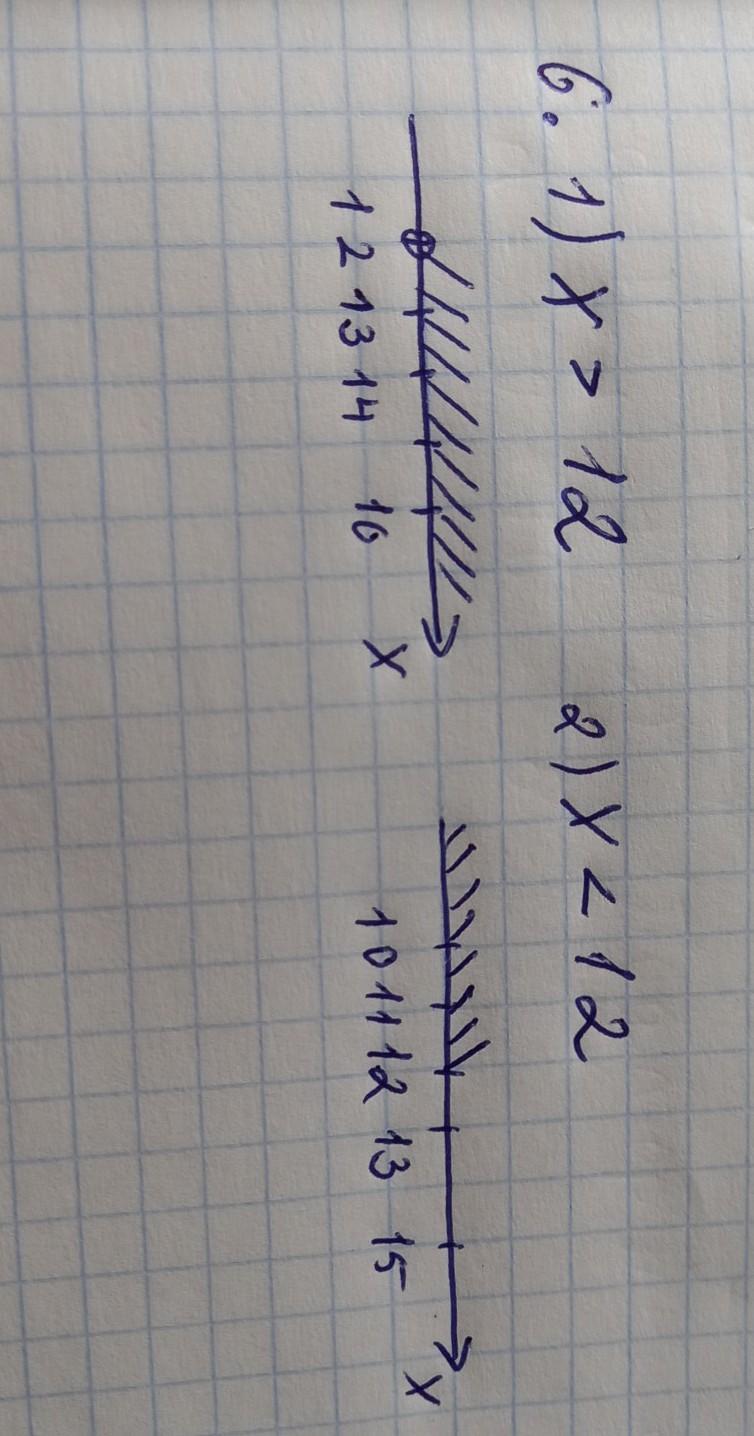 6. 1) x > 12 2) x < 12
12 13 14 16 x 10 11 12 13 15 x